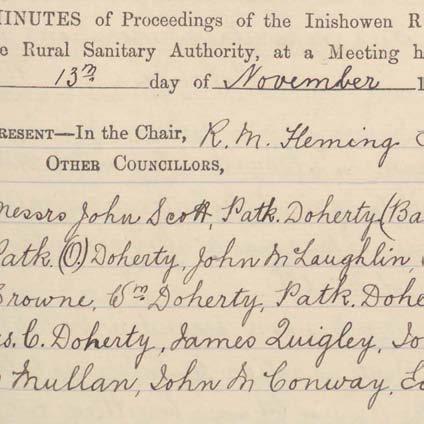 MINUTES of Proceedings of the Inishowen R
e Rural Sanitary Authority, at a Meeting h
13th day of November 1
RESENT—In the Chair, R. M. Fleming
OTHER COUNCILLORS,
Messrs John Scott, Patk. Doherty (Ba
Patk. (O.) Doherty, John McLaughlin,
Browne, Wm Doherty, Patk. Dohe
s. C. Doherty, James Quigley, Jo
Mullan, John McConway, Ed